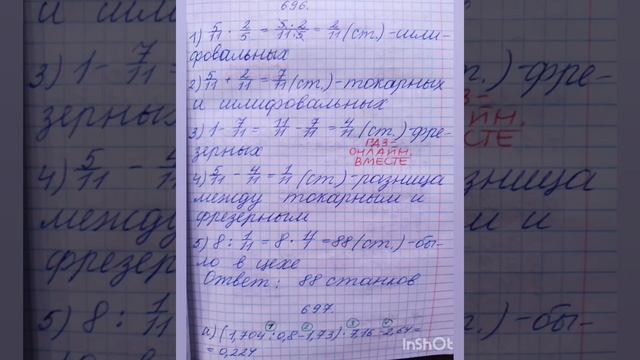 696.
1) 5/11 · 2/5 = 5·2/11·5 = 2/11 (ст.) - шли-
фовальных
2) 5/11 + 2/11 = 7/11 (ст.) - токарных
и шлифовальных
3) 1 - 7/11 = 11/11 - 7/11 = 4/11 (ст.) - фре-
зерных
РАЗ-
ОНЛАЙН.
ВМЕСТЕ
4) 5/11 - 4/11 = 1/11 (ст.) - разница
между токарным и
фрезерным
5) 8 : 1/11 = 8 · 11/1 = 88 (ст.) - бы-
ло в цехе
Ответ: 88 станков
697.
а) (1,704 : 0,8 - 1,73) · 7,16 - 2,64 =
= 0,224
InShOt